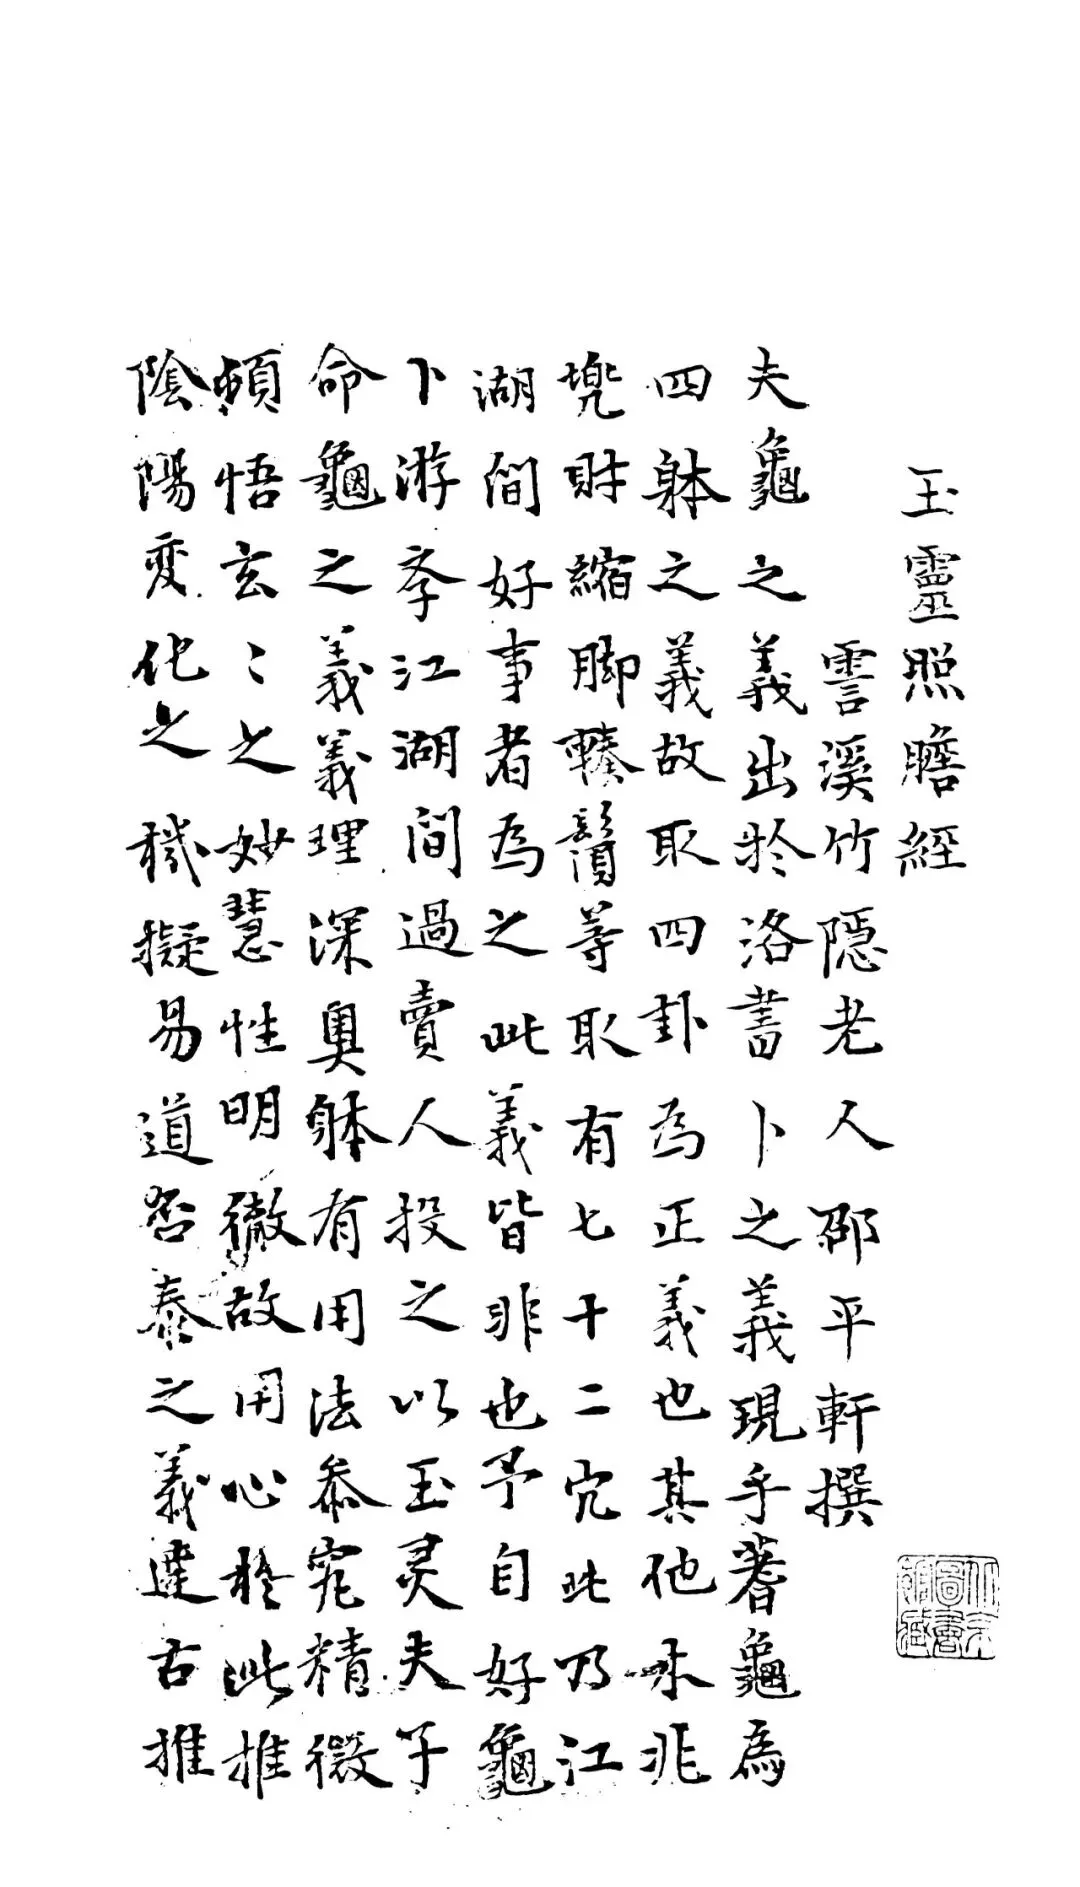 玉靈照膽經
霅溪竹隱老人邵平軒撰
夫龜之義出於洛書卜之義現乎蓍龜為
四躰之義故取四卦為正義也其他木兆
兠財縮脚轃鬚等取有七十二宂此乃江
湖間好事者為之此義皆非也予自好龜
卜游孝江湖間過賣人投之以玉灵夫子
命龜之義義理深奥躰有用法叅究精微
頓悟玄〻之妙慧性明徹故用心於此推
陰陽変化之機擬易道否泰之義達古推